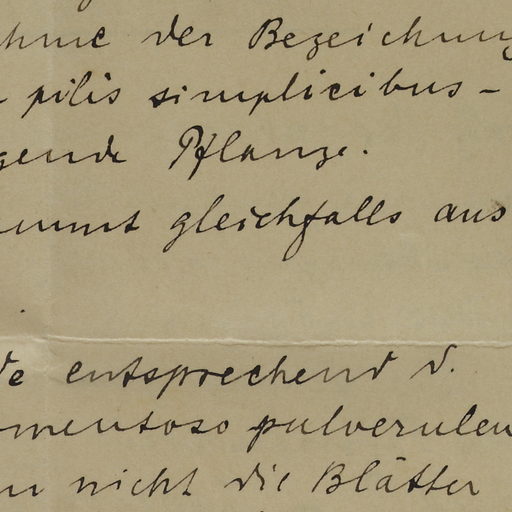 hme der Bezeichnung
pilis simplicibus -
gende Pflanze.
ammt gleichfalls aus
de entsprechend d.
omentoso pulverulen
nicht die Blätter